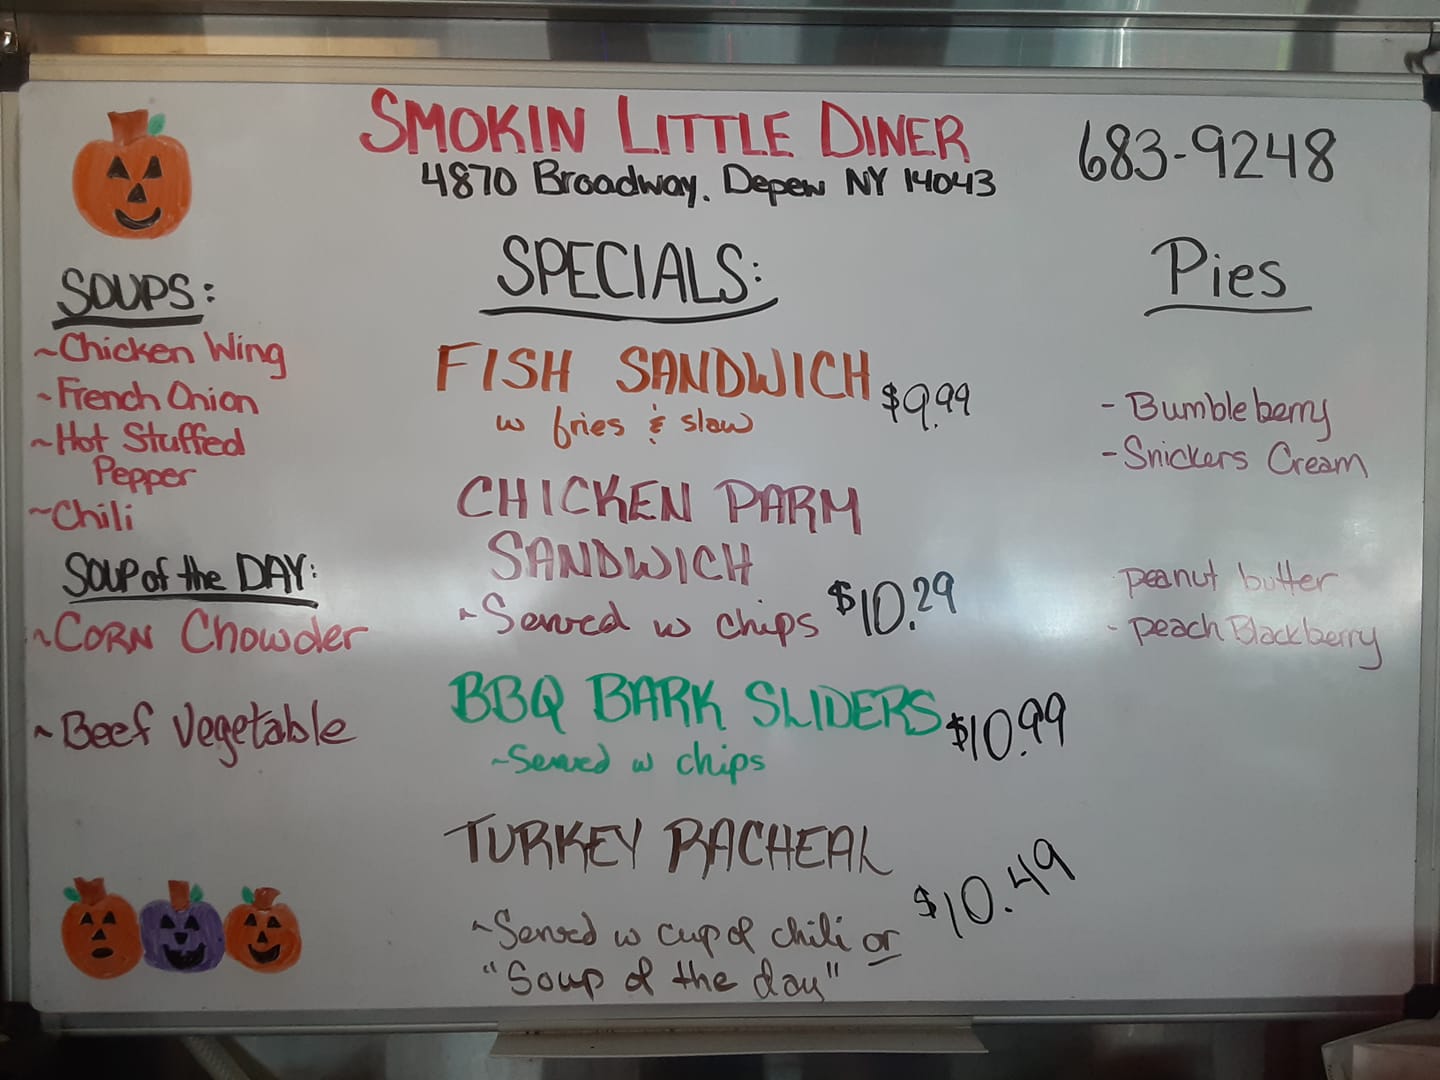 SMOKIN LITTLE DINER
4870 Broadway. Depew NY 14043
683-9248
SOUPS:
~Chicken Wing
~French Onion
~Hot Stuffed
Pepper
~Chili
SOUP of the DAY:
~CORN Chowder
~Beef Vegetable
SPECIALS:
FISH SANDWICH $9.99
w fries & slaw
CHICKEN PARM
SANDWICH
~Served w chips $10.29
BBQ BARK SLIDERS $10.99
~Served w chips
TURKEY RACHEAL
$10.49
~Served w cup of chili or
"Soup of the day"
Pies
- Bumbleberry
- Snickers Cream
peanut butter
- peach Blackberry